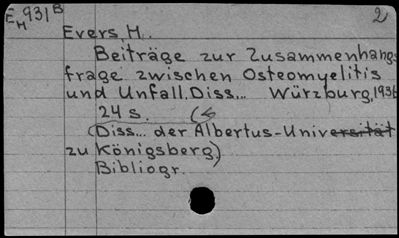 E_H 931 B 2
Evers, H.
Beiträge zur Zusammenhangs
frage zwischen Osteomyelitis
und Unfall. Diss... Würzburg, 1936
24 s.
(Diss... der Albertus-Universität
zu Königsberg.)
Bibliogr.